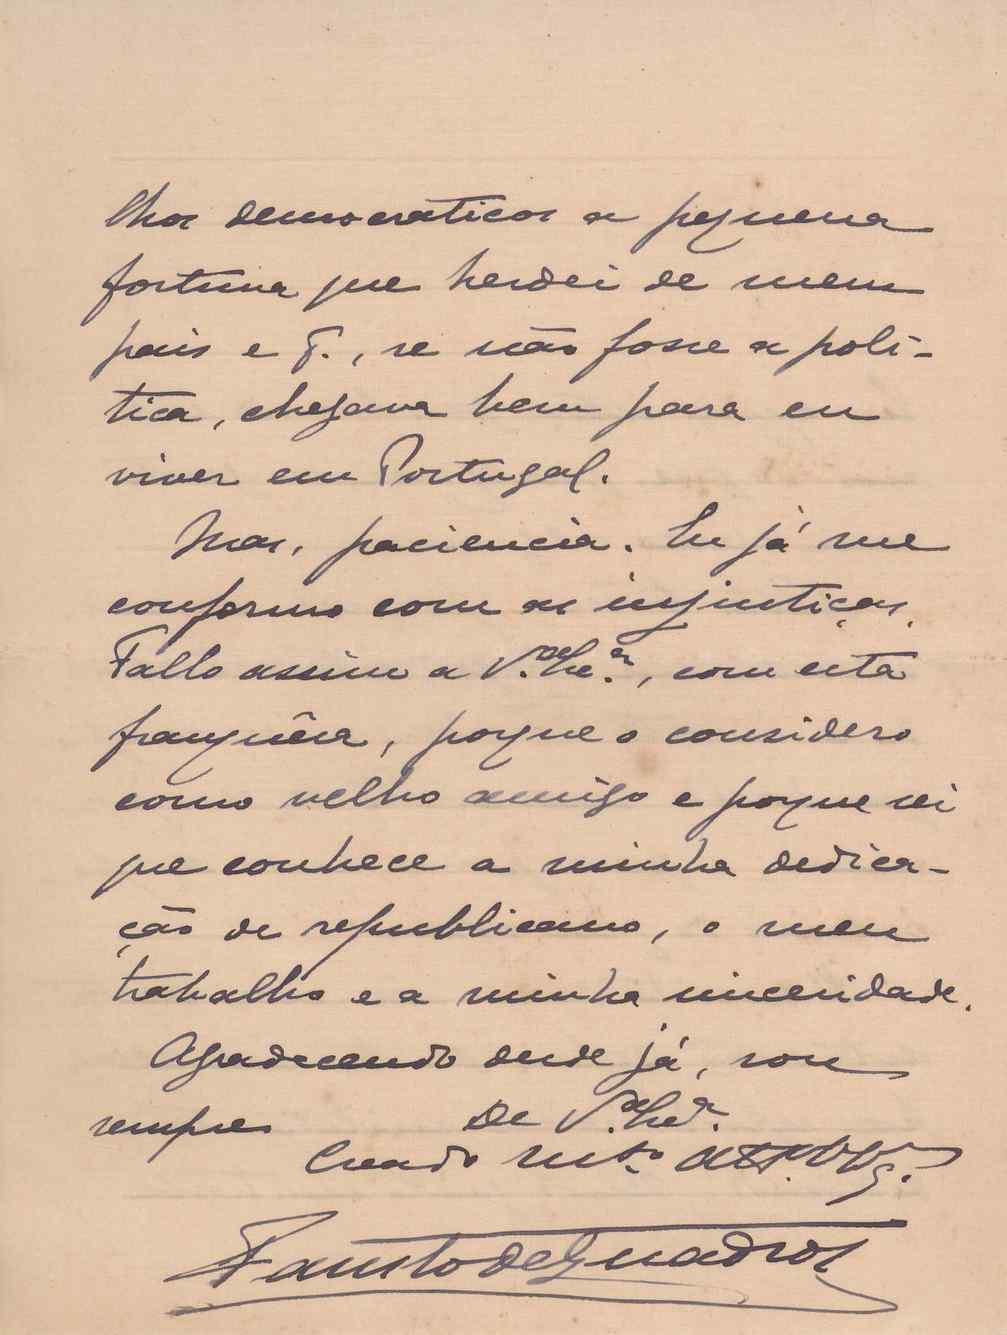 lhos democraticos a pequena
fortuna que herdei de meus
pais e q., se não fosse a polí-
tica, chegava bem para eu
viver em Portugal.
Mas, paciencia. Eu já me
conformo com as injustiças.
Fallo assim a V. Ex.ª, com esta
franquêsa, porque o considero
como velho amigo e porque sei
que conhece a minha dedica-
ção de republicano, o meu
trabalho e a minha sinceridade.
Agradecendo desde já, sou
sempre De V. Ex.ª
Creado m.to att.º
Fausto de Quadros